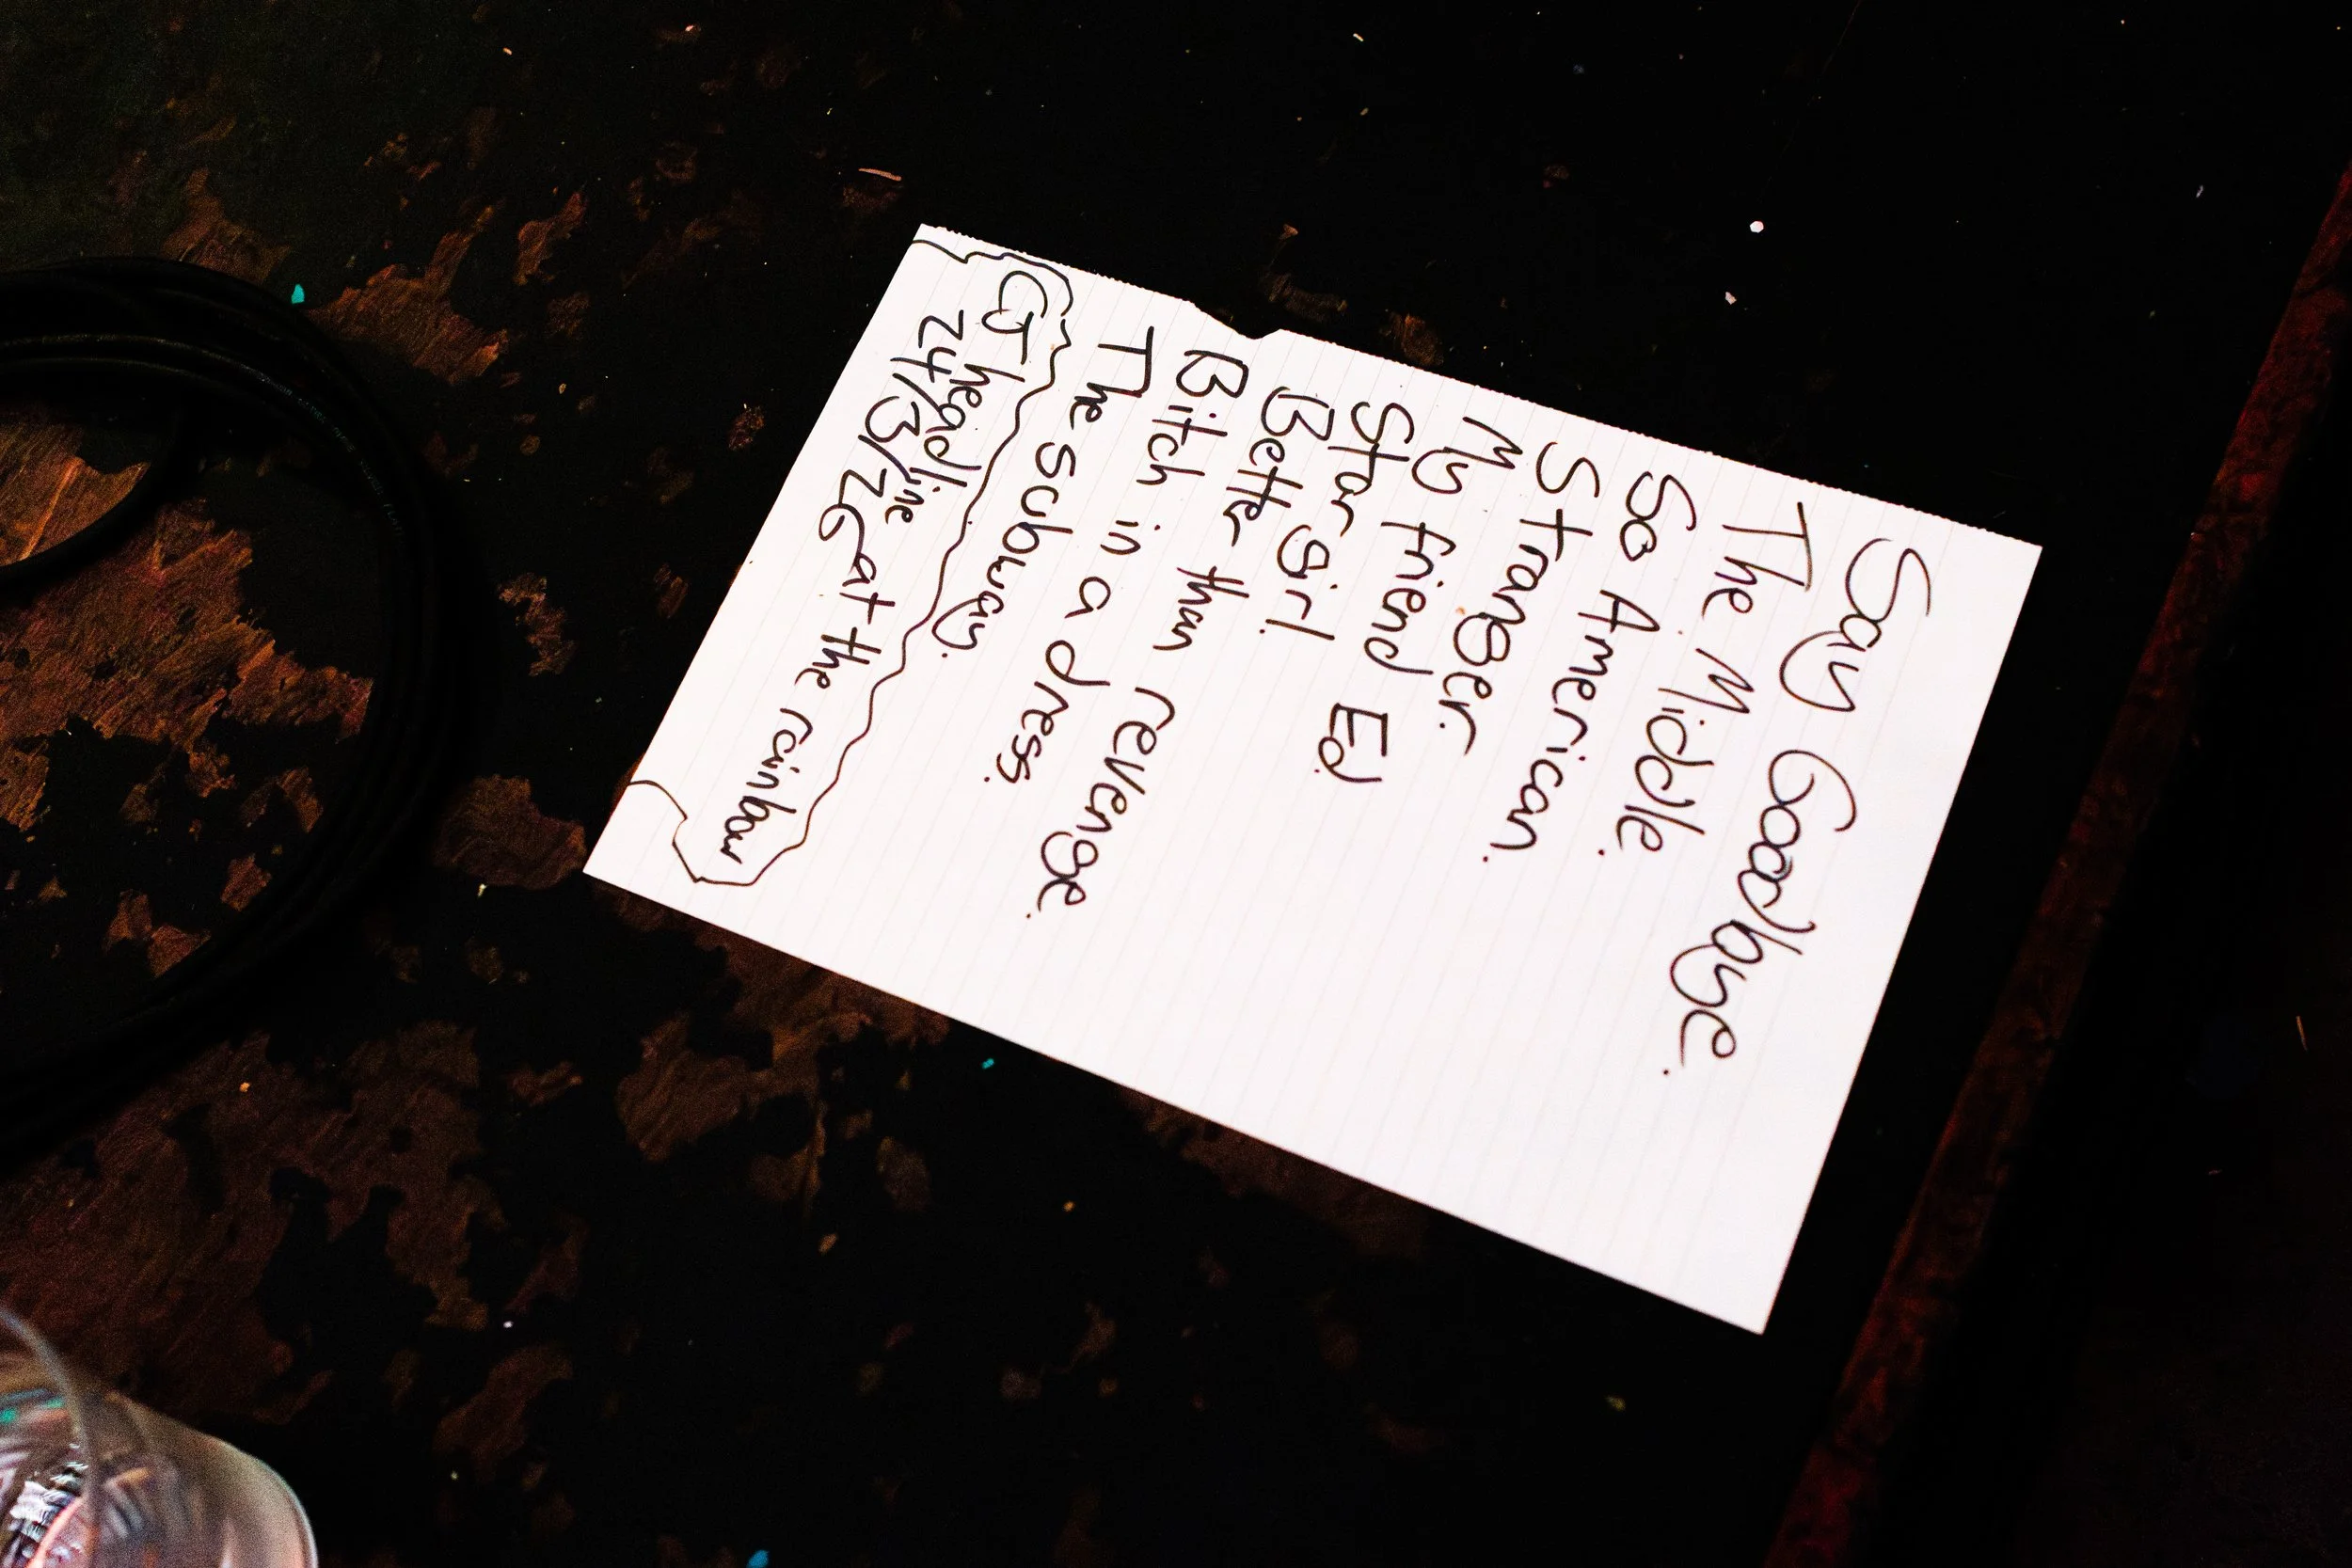 Say Goodbye.
The Middle.
So American.
Stranger.
My friend Ed.
Star girl.
Better than revenge.
Bitch in a dress.
The subway.
headline
24/3/26 at the rainbow